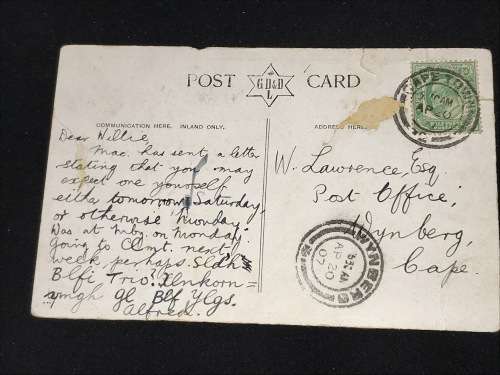 POST CARD
G.D&D
L
COMMUNICATION HERE. INLAND ONLY.
ADDRESS HERE.
Dear Willie
Mac. has sent a letter
stating that you may
expect one yourself
either tomorrow, Saturday,
or otherwise Monday.
Was at Mbg. on Monday.
going to Clmt. next
week perhaps.
Blfi Trio?
gl Blf Ylgs.
Alfred.
W. Lawrence, Esq.
Post Office,
Wynberg,
Cape.
CAPE TOWN
WYNBERG
AP 20
07